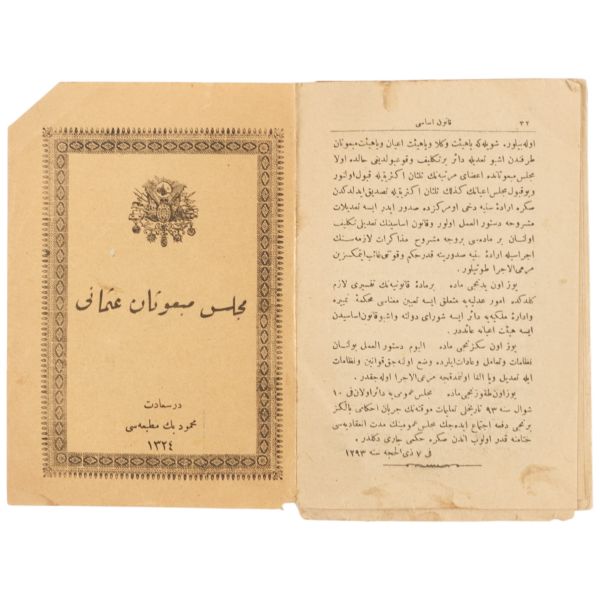 مجلس مبعوثان عثمانی
در سعادت
محمود بك مطبعه‌سی
١٣٢٤
٣٢
قانون اساسی
اوله بیلور. شویله که یا هیئت وکلا و یا هیئت اعیان و یا هیئت مبعوثان
طرفندن اشبو تعدیله دائر بر تکلیف وقوعبولدیغی حالده اولا
مجلس مبعوثانده اعضای مرتبه‌نك ثلثان اکثریتیله قبول اولنور
و بو قبول مجلس اعیانك کذلك ثلثان اکثریتیله تصدیق ایدلدکدن
صکره ارادهٔ سنیه دخی او مرکزده صدور ایدر ایسه تعدیلات
مشروحه دستور العمل اولور و قانون اساسینك تعدیلی تکلیف
اولنان بر ماده‌سی بروجه مشروح مذاکرات لازمه‌سنك
اجراسیله ارادهٔ سنیه صدورینه قدر حکم و قوتنی غائب ایتمکسزین
مرعی الاجرا طوتیلور.
یوز اون یدنجی ماده بر مادهٔ قانونیه‌نك تفسیری لازم
کلدکده امور عدلیه‌یه متعلق ایسه تعیین معناسی محکمهٔ تمییزه
و ادارهٔ ملکیه‌یه دائر ایسه شورای دولته و اشبو قانون اساسیدن
ایسه هیئت اعیانه عائددر.
یوز اون سکزنجی ماده الیوم دستور العمل بولنان
نظامات و تعامل و عادات ایلرده وضع اوله‌جق قوانین و نظامات
ایله تعدیل و یا الغا اولنمدقجه مرعی الاجرا اوله‌جقدر.
یوز اون طقوزنجی ماده مجلس عمومی‌یه دائر اولان فی ١٠
شوال سنه ٩٣ تاریخلی تعلیمات موقته‌نك جریان احکامی یالکز
برنجی دفعه اجتماع ایده‌جك مجلس عمومینك مدت انعقادیه‌سی
ختامنه قدر اولوب اندن صکره حکمی جاری دکلدر.
فی ٧ ذی الحجه سنه ١٢٩٣